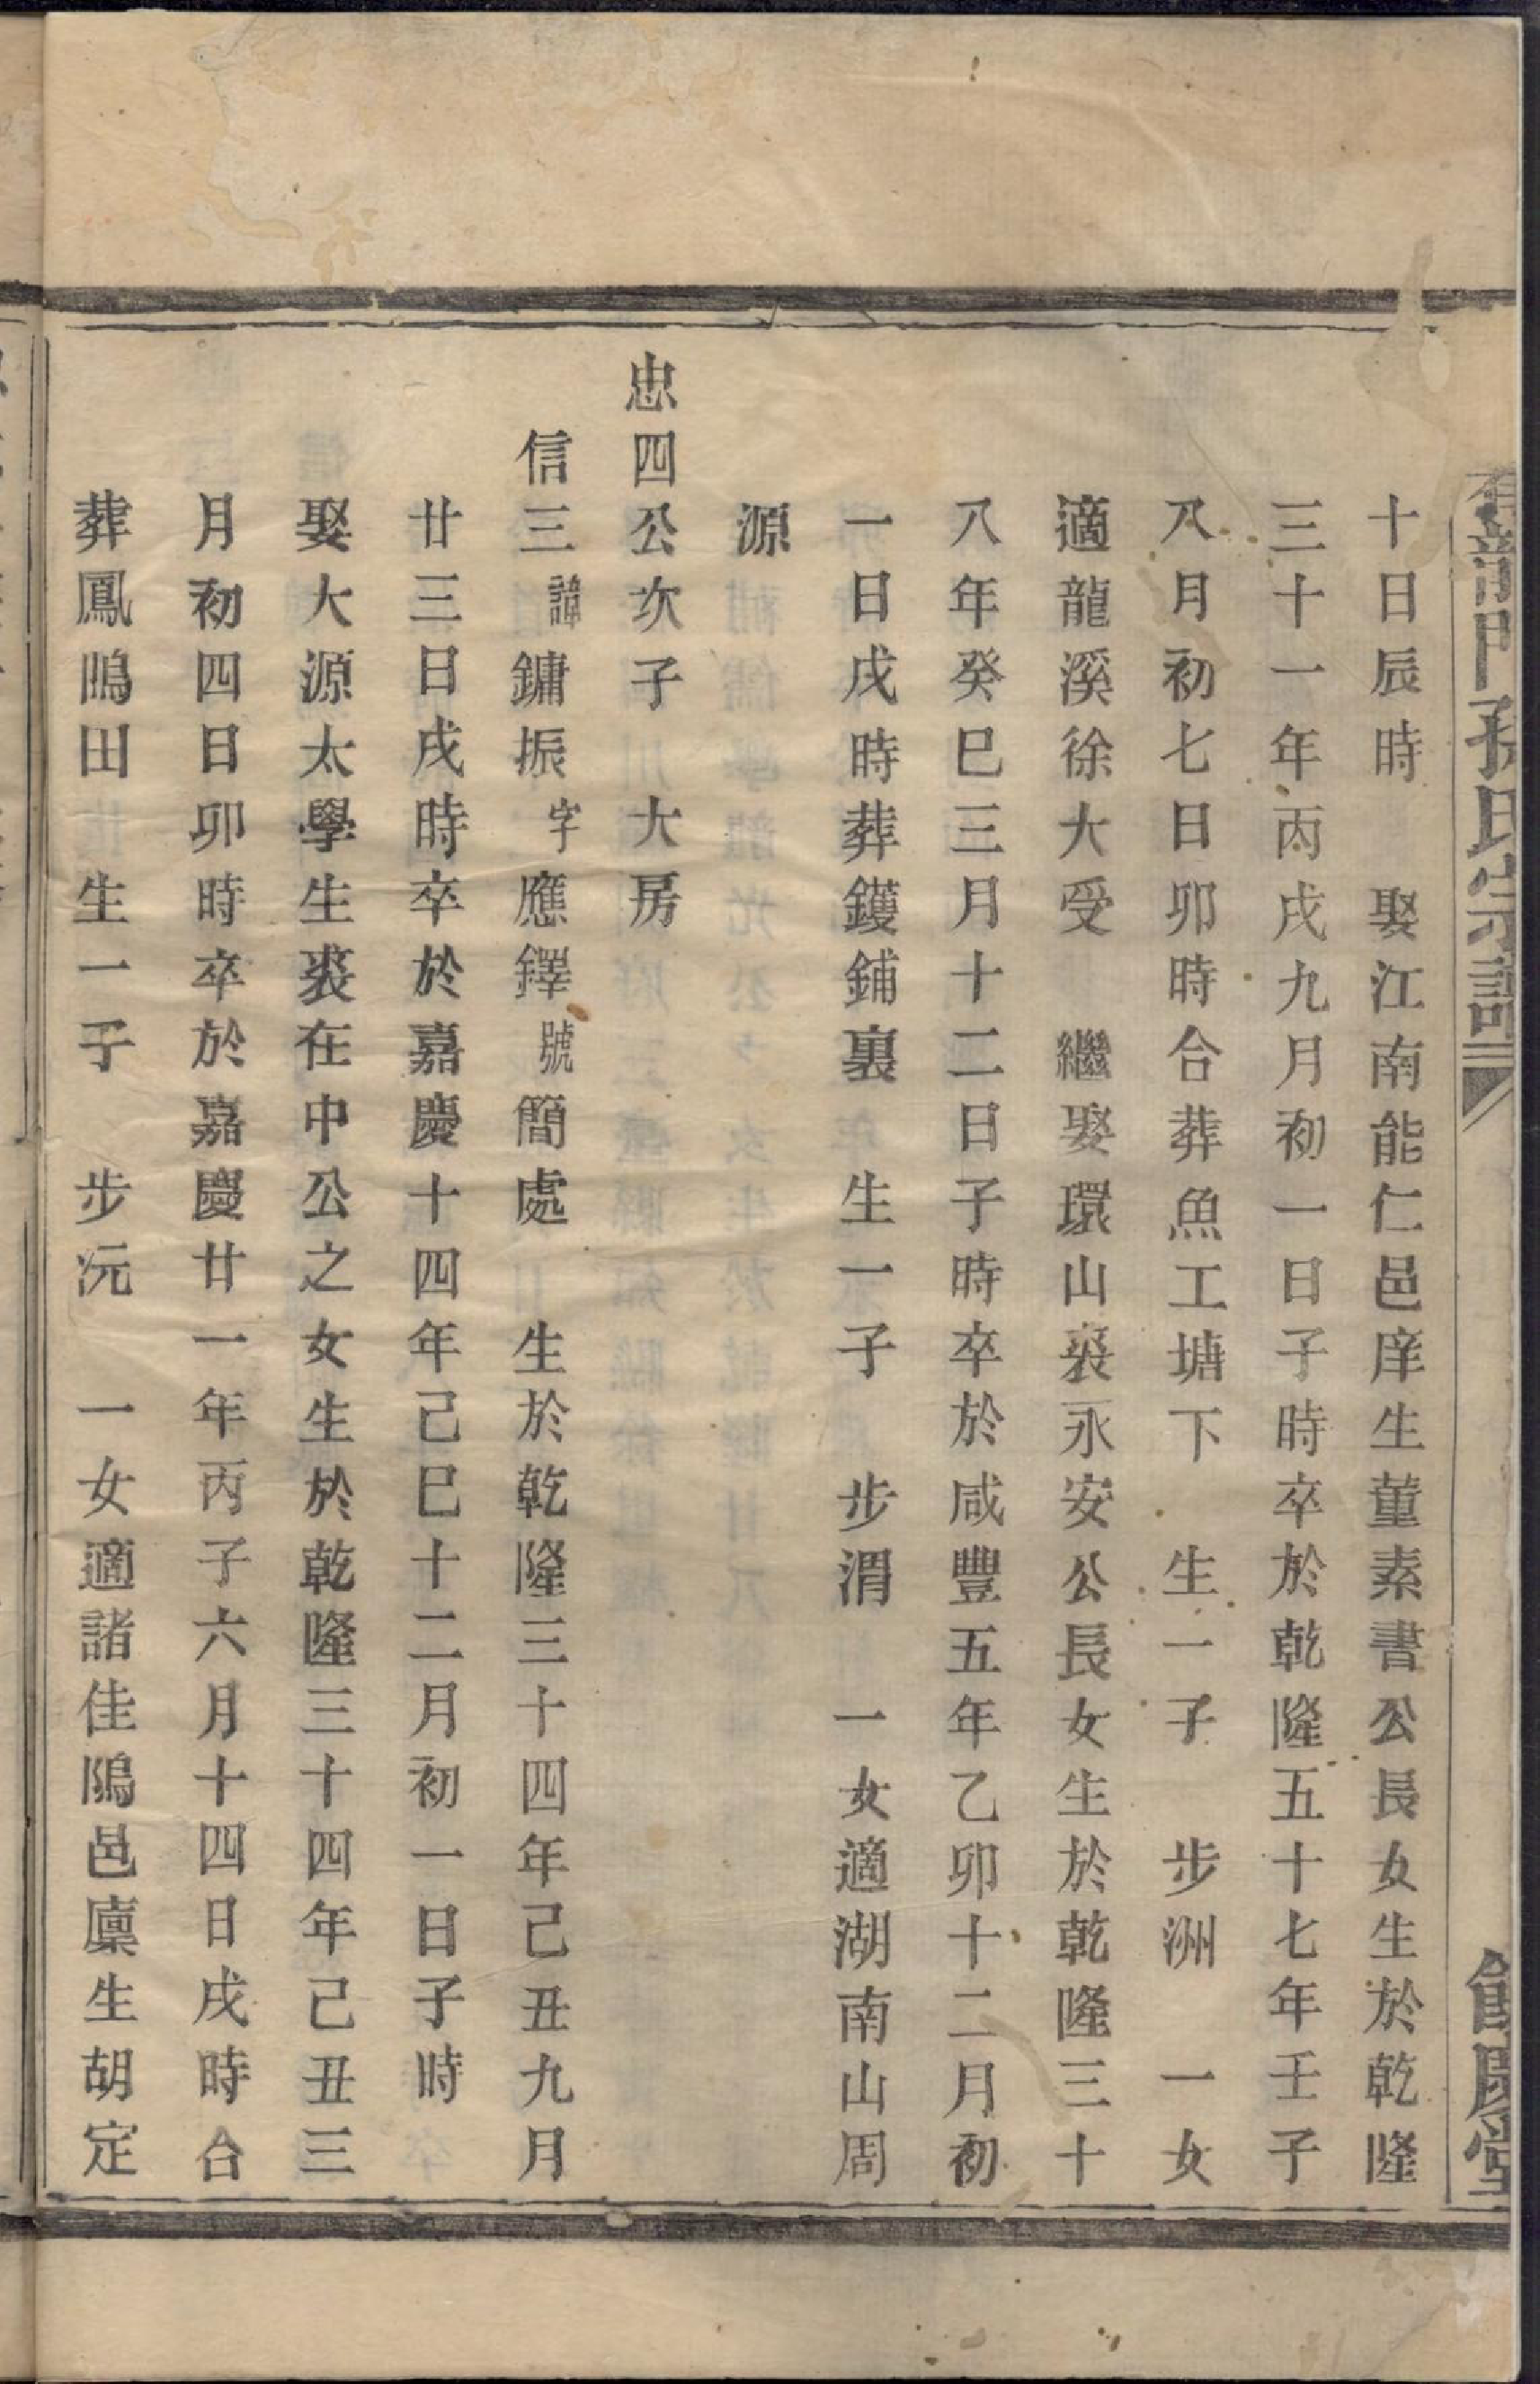 龍門孫氏宗譜 餘慶堂
十日辰時 娶江南能仁邑庠生董素書公長女生於乾隆
三十一年丙戌九月初一日子時卒於乾隆五十七年壬子
八月初七日卯時合葬魚工塘下 生一子 步洲 一女
適龍溪徐大受 繼娶環山裘永安公長女生於乾隆三十
八年癸巳三月十二日子時卒於咸豐五年乙卯十二月初
一日戌時葬鑊鋪裏 生一子 步渭 一女適湖南山周
源
忠四公次子 大房
信三諱鏞振字應鐸號簡處 生於乾隆三十四年己丑九月
廿三日戌時卒於嘉慶十四年己巳十二月初一日子時
娶大源太學生裘在中公之女生於乾隆三十四年己丑三
月初四日卯時卒於嘉慶廿一年丙子六月十四日戌時合
葬鳳鳴田 生一子 步沅 一女適諸佳隝邑廩生胡定